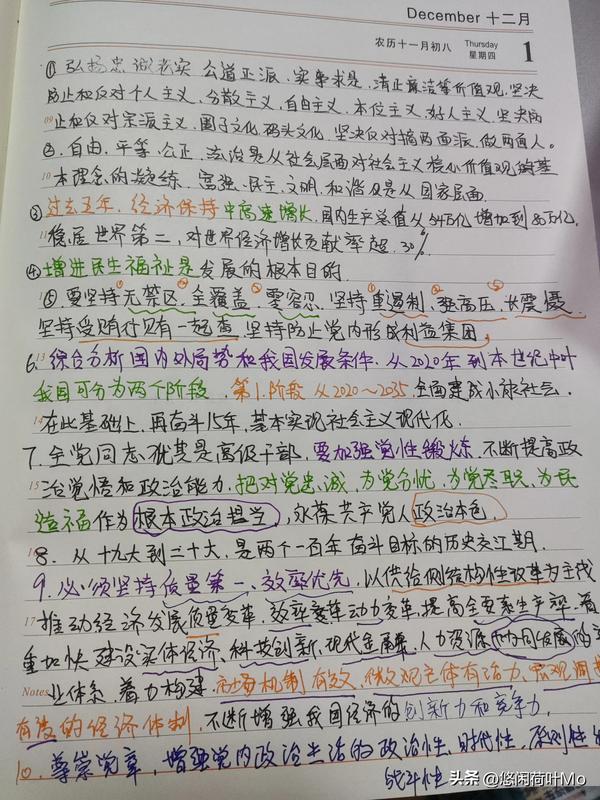 December 十二月
农历十一月初八 Thursday 星期四 1
① 弘扬忠诚老实、公道正派、实事求是、清正廉洁等价值观,坚决
防止和反对个人主义、分散主义、自由主义、本位主义、好人主义,坚决防
09 止和反对宗派主义、圈子文化、码头文化,坚决反对搞两面派、做两面人。
②、自由、平等、公正、法治是从社会层面对社会主义核心价值观的基
10 本理念的凝练,富强、民主、文明、和谐是从国家层面
③过去五年,经济保持中高速增长,国内生产总值从54万亿增加到80万亿,
11 稳居世界第二,对世界经济增长贡献率超30%
④增进民生福祉是发展的根本目的
⑤要坚持①无禁区、②全覆盖、③零容忍,坚持④重遏制、强高压、⑤长震慑,
坚持受贿行贿一起查,坚持防止党内形成利益集团,
6. 13 综合分析国内外局势和我国发展条件,从2020年到本世纪中叶
我国可分为两个阶段,第1阶段从2020~2035,全面建成小康社会,
14 在此基础上,再奋斗15年,基本实现社会主义现代化,
7. 全党同志尤其是高级干部,要加强党性锻炼,不断提高政
15 治觉悟和政治能力,把对党忠诚、为党分忧、为党尽职、为民
造福作为根本政治担当,永葆共产党人政治本色,
8. 从十九大到二十大,是两个一百年奋斗目标的历史交汇期,
9. 必须坚持质量第一、效率优先,以供给侧结构性改革为主线
17 推动经济发展质量变革、效率变革、动力变革,提高全要素生产率,着
重加快建设实体经济、科技创新、现代金融、人力资源协同发展的
Notes 业体系,着力构建市场机制有效、微观主体有活力、宏观调控
有度的经济体制,不断增强我国经济的创新力和竞争力,
10. 尊崇党章,增强党内政治生活的政治性、时代性、原则性
战斗性
头条 @悠闲荷叶Mo